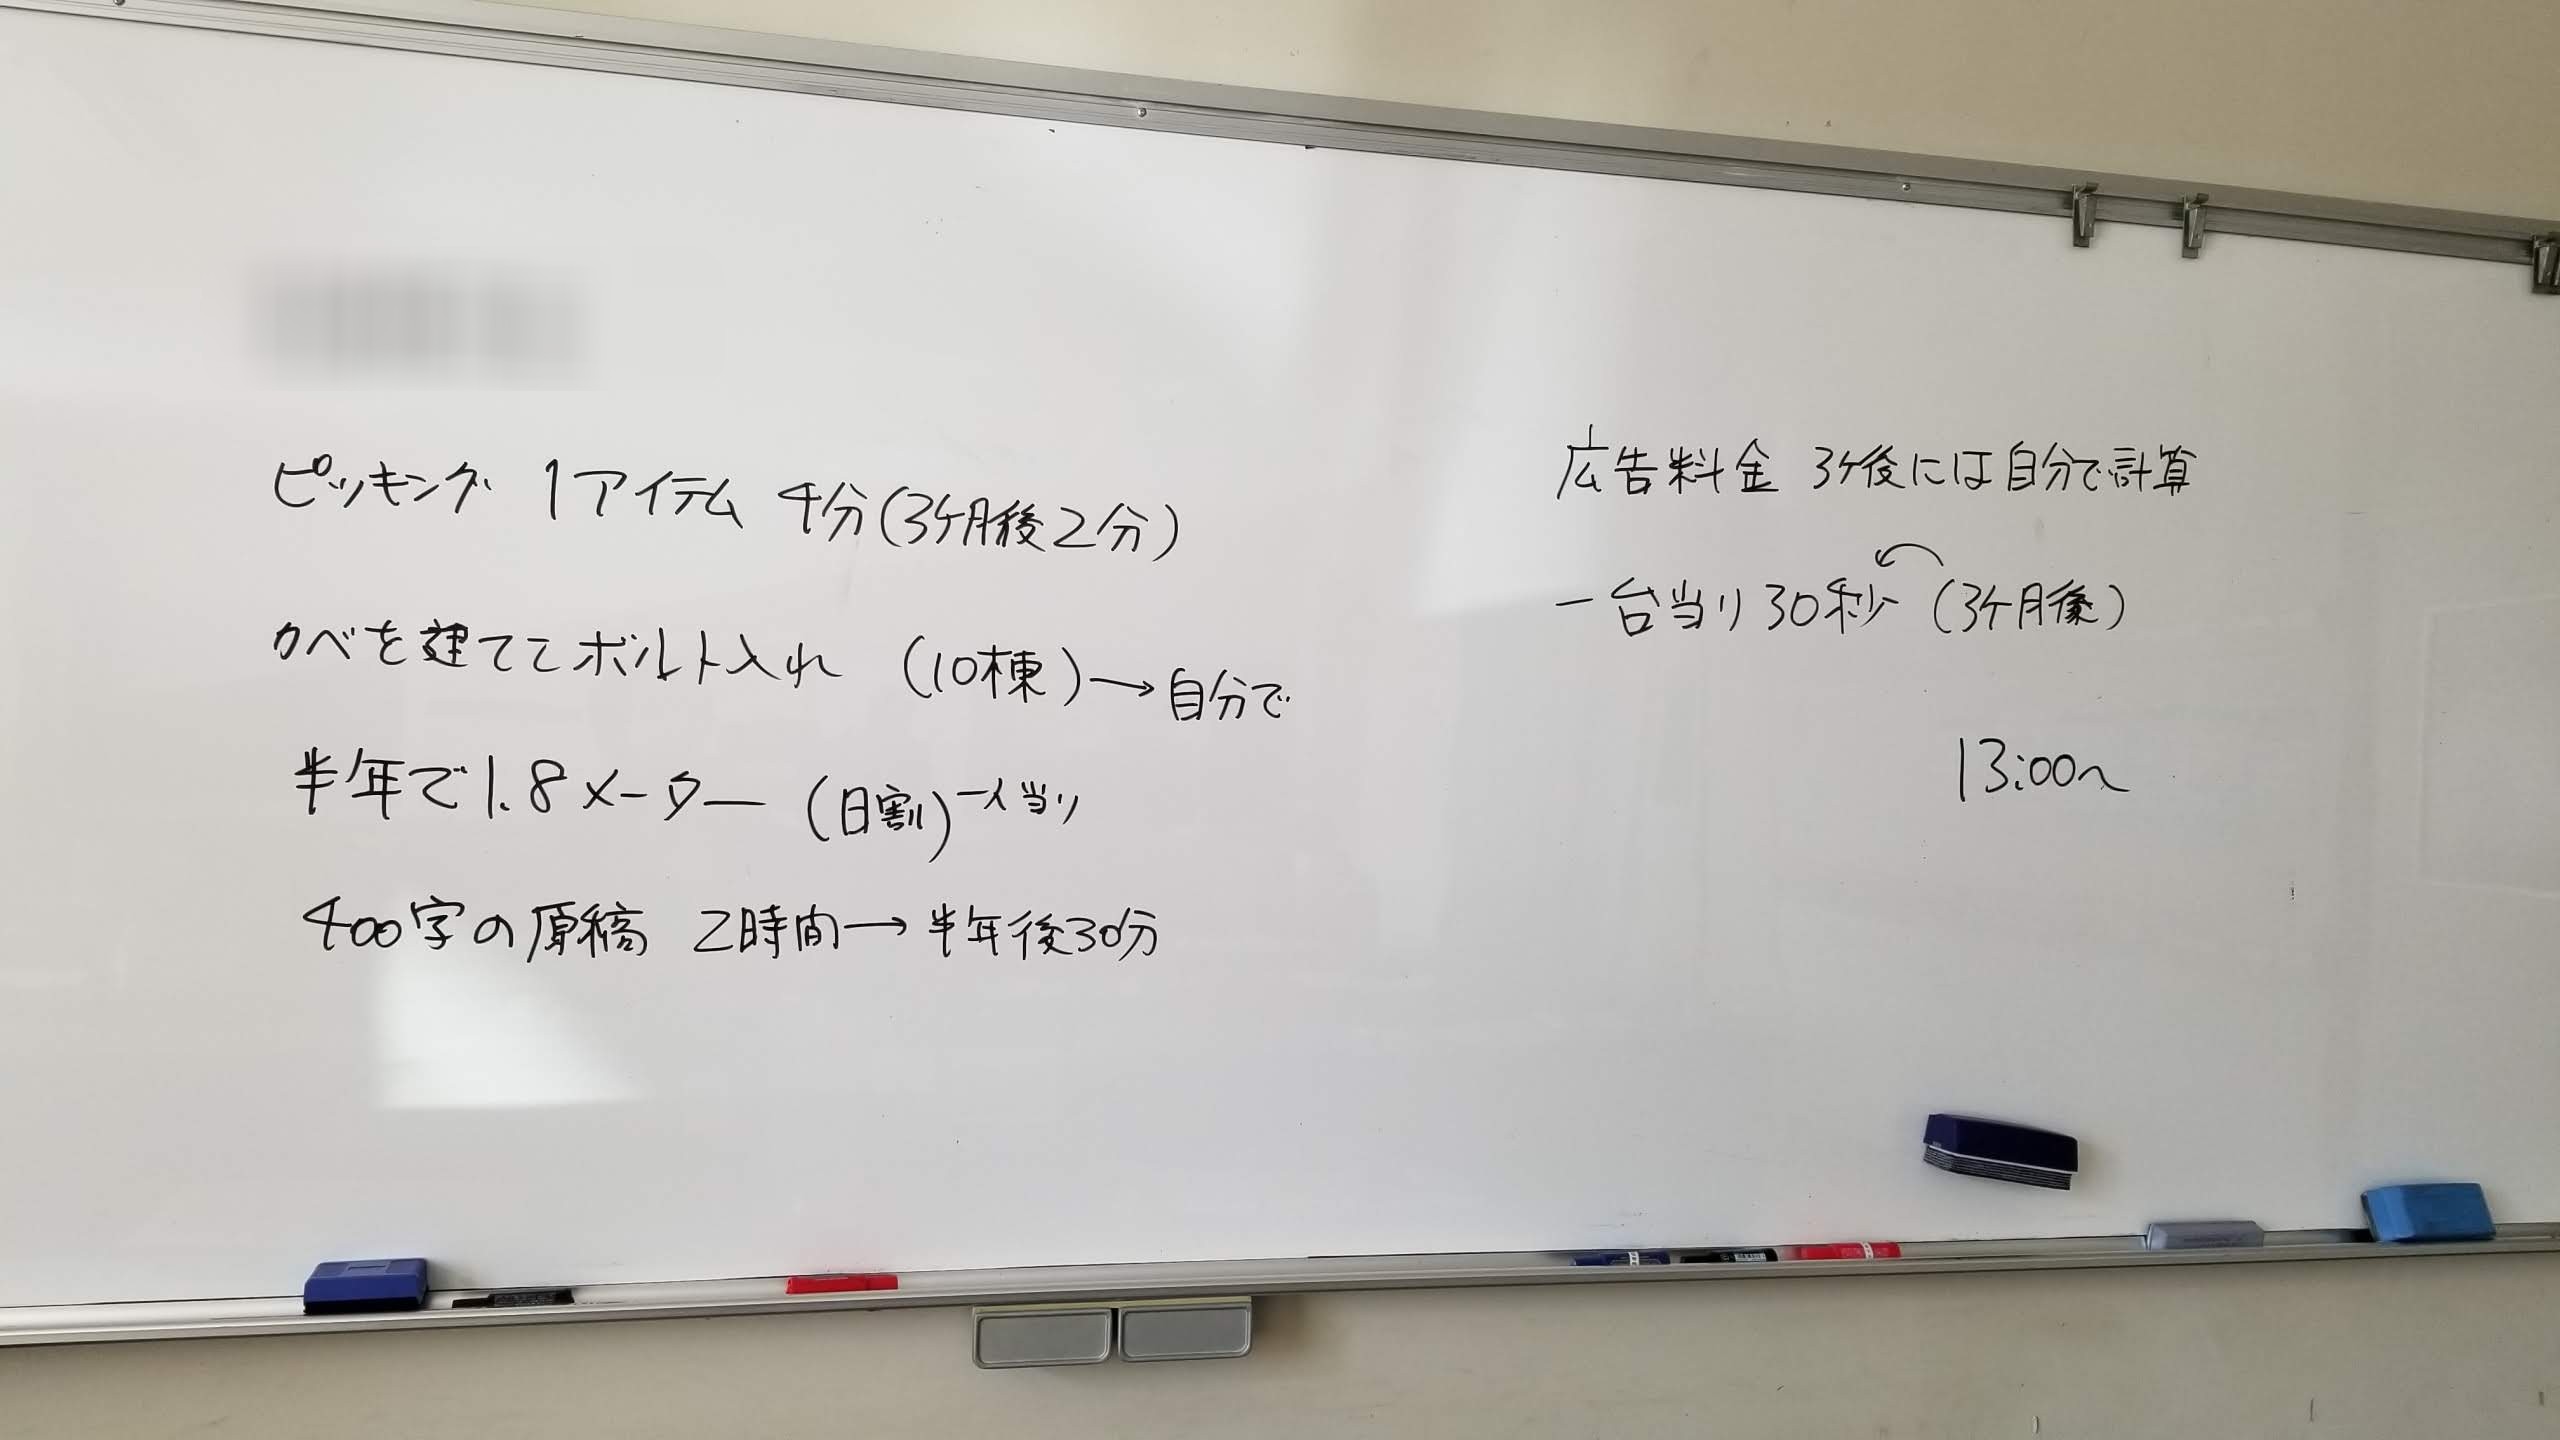 ピッキング 1アイテム 4分(3ヶ月後2分)
カベを建ててボルト入れ (10棟)→自分で
半年で1.8メーター (日割)一人当り
400字の原稿 2時間→半年後30分
広告料金 3ヶ後には自分で計算
一台当り30秒 (3ヶ月後)
13:00~